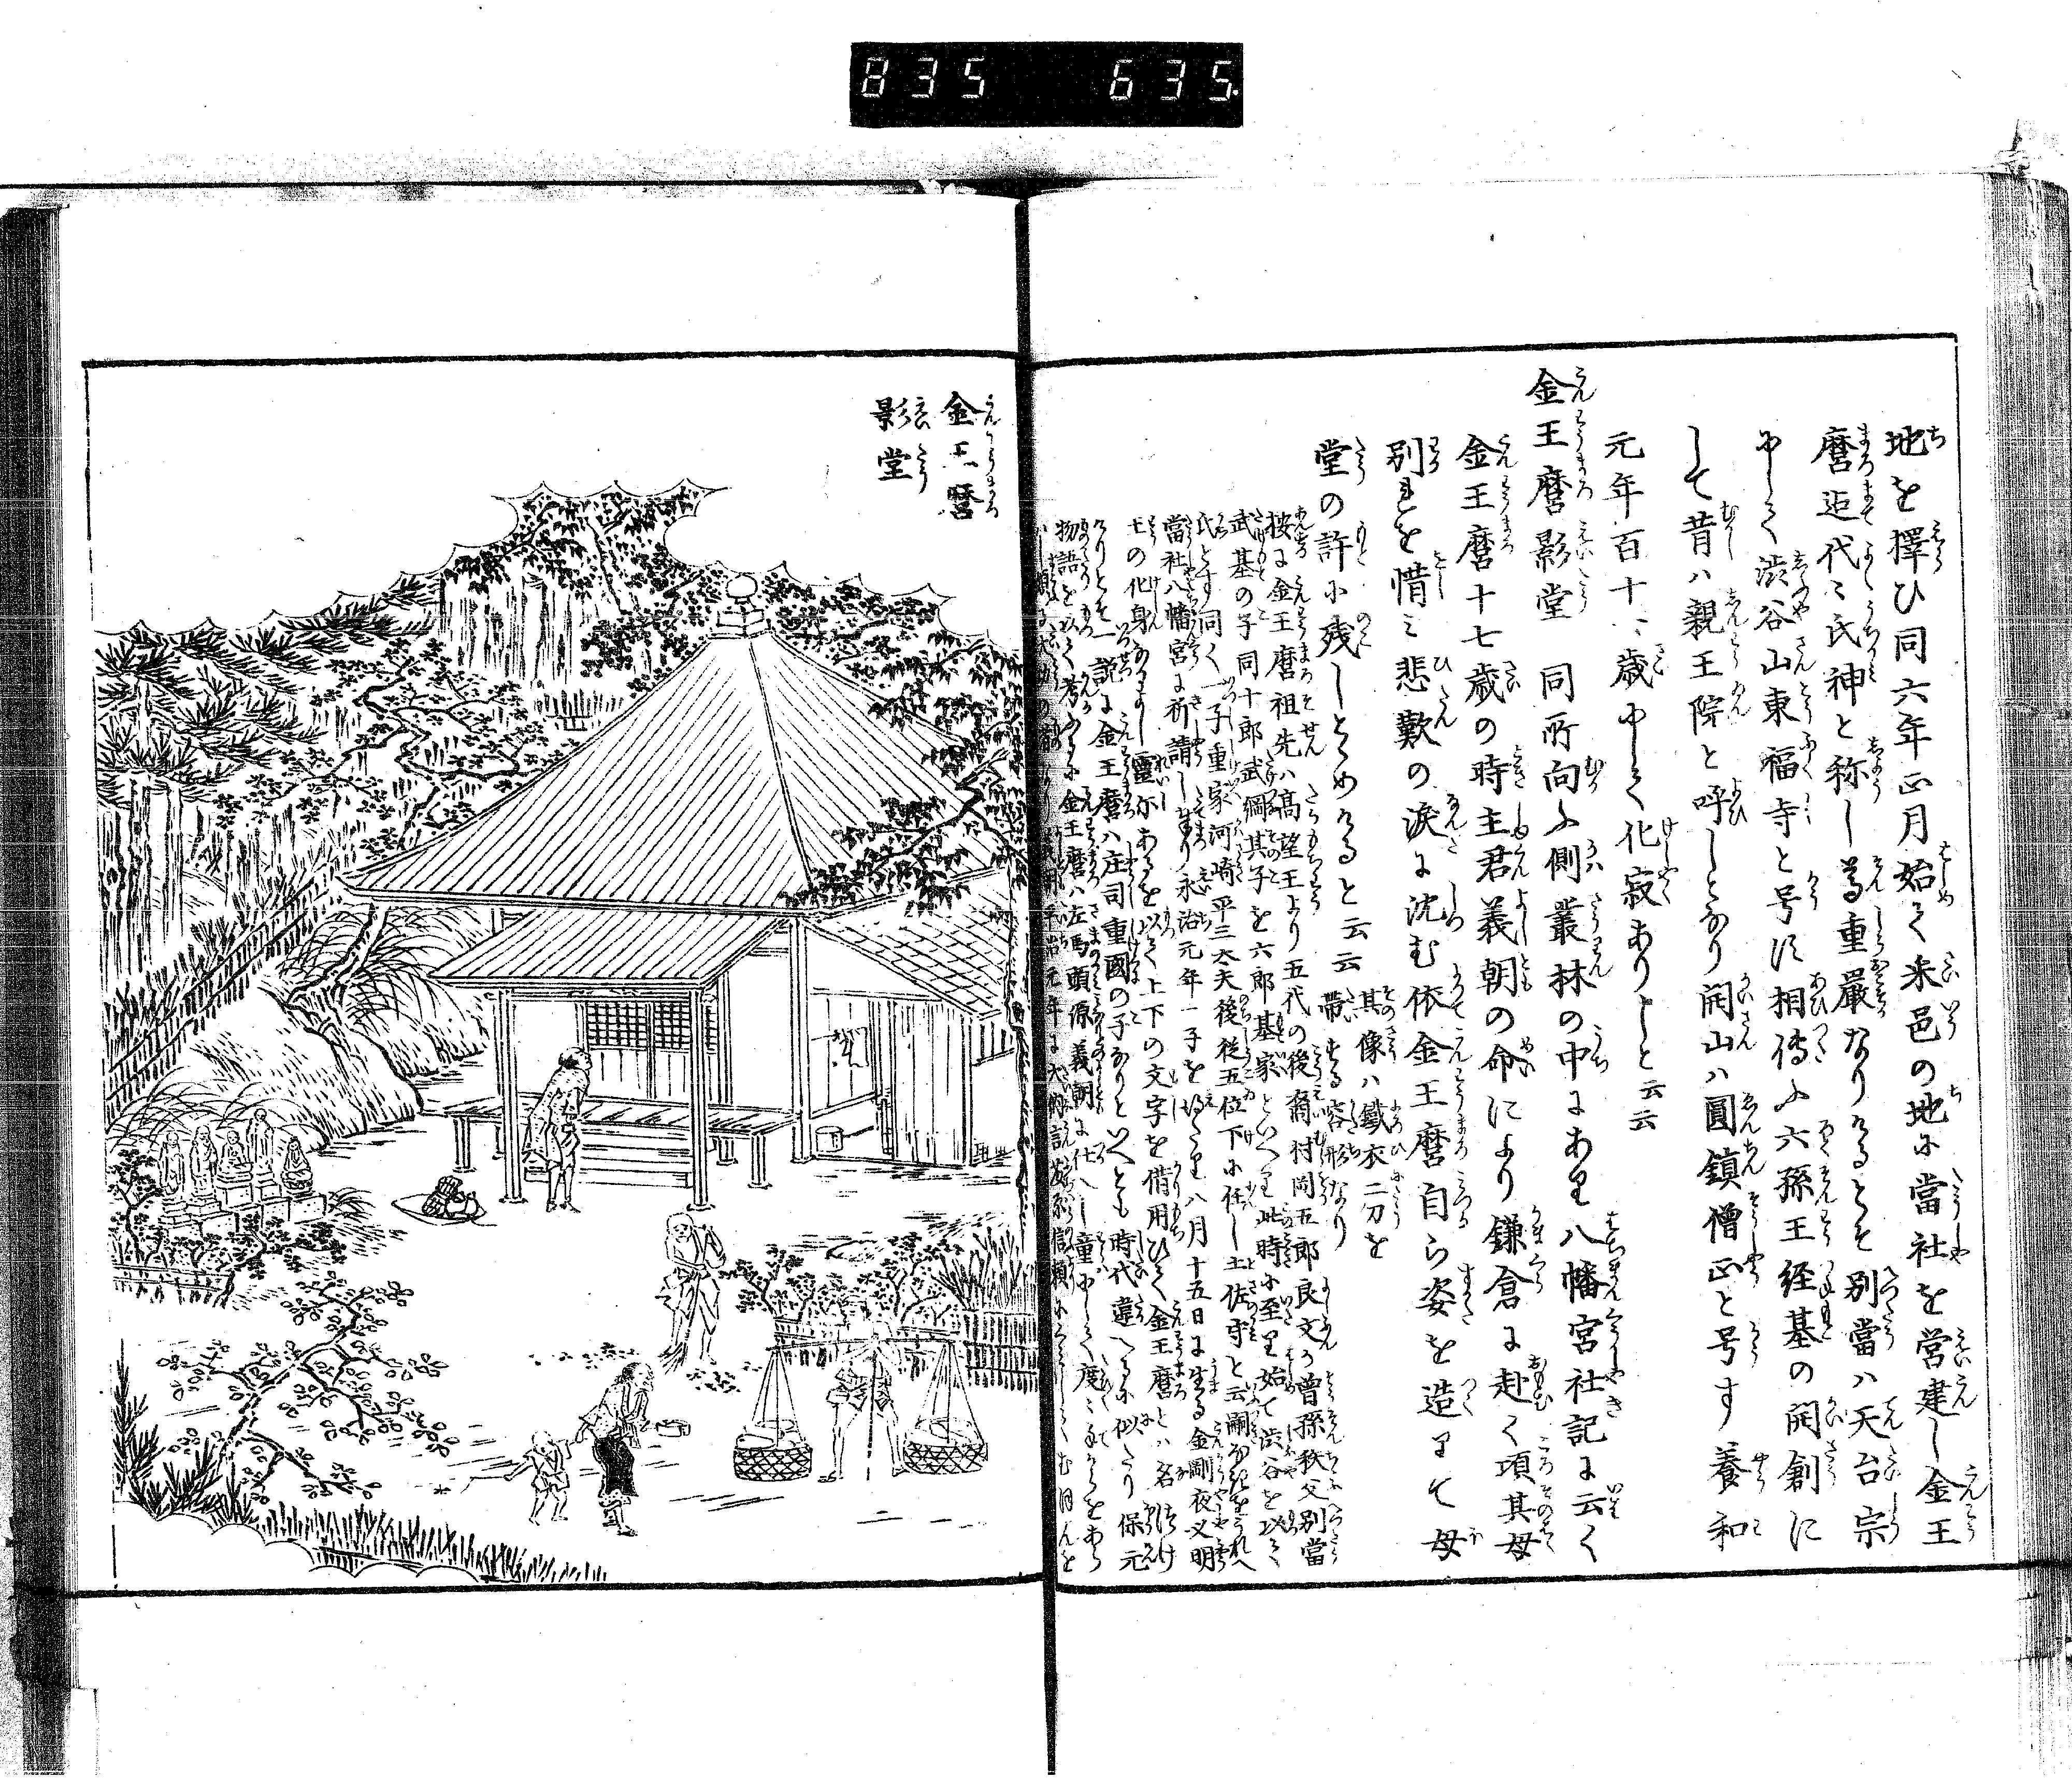 835 635
地を擇ひ同六年正月始て来邑の地に當社を営建し金王
麿迄代々氏神と称し尊重嚴なりけるとそ別當ハ天台宗
にして渋谷山東福寺と号す相傳ふ六孫王経基の開創に
して昔ハ親王院と呼しとなり開山ハ圓鎮僧正と号す養和
元年百十二歳にして化寂ありしと云云
金王麿影堂 同所向ふ側叢林の中にあり八幡宮社記に云く
金王麿十七歳の時主君義朝の命により鎌倉に赴く項其母
別れを惜ミ悲歎の涙に沈む依金王麿自ら姿を造りて母
堂の許に残しとゝめけると云云 其像ハ鐵衣二刀を
帯せる容形なり
按に金王麿祖先ハ高望王より五代の後裔村岡五郎良文の曽孫秩父別當
武基の子同十郎武綱其子を六郎基家といへり此時に至り始て渋谷を以て
氏とす同く一子重家河崎平三大夫後従五位下に任し土佐守と云嗣なきをうれへ
當社八幡宮に祈請し奉り永治元年一子を得たり八月十五日に生る金剛夜叉明
王の化身なりよし靈示あるを以て上下の文字を借用ひて金王麿とハ名つけ
けりとそ一説に金王麿ハ庄司重國の子なりといへとも時代違へるに似たり保元
物語を以て考ふるに金王麿ハ左馬頭源義朝に仕へし童にして度々手からをあら
金王麿
影堂